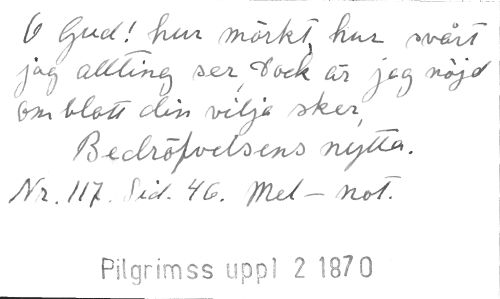 O Gud! hur mörkt, hur svårt
jag allting ser, Dock är jag nöjd
om blott din vilja sker,
Bedröfvelsens nytta.
Nr. 117. Sid. 46. Mel – not.
Pilgrimss uppl 2 1870